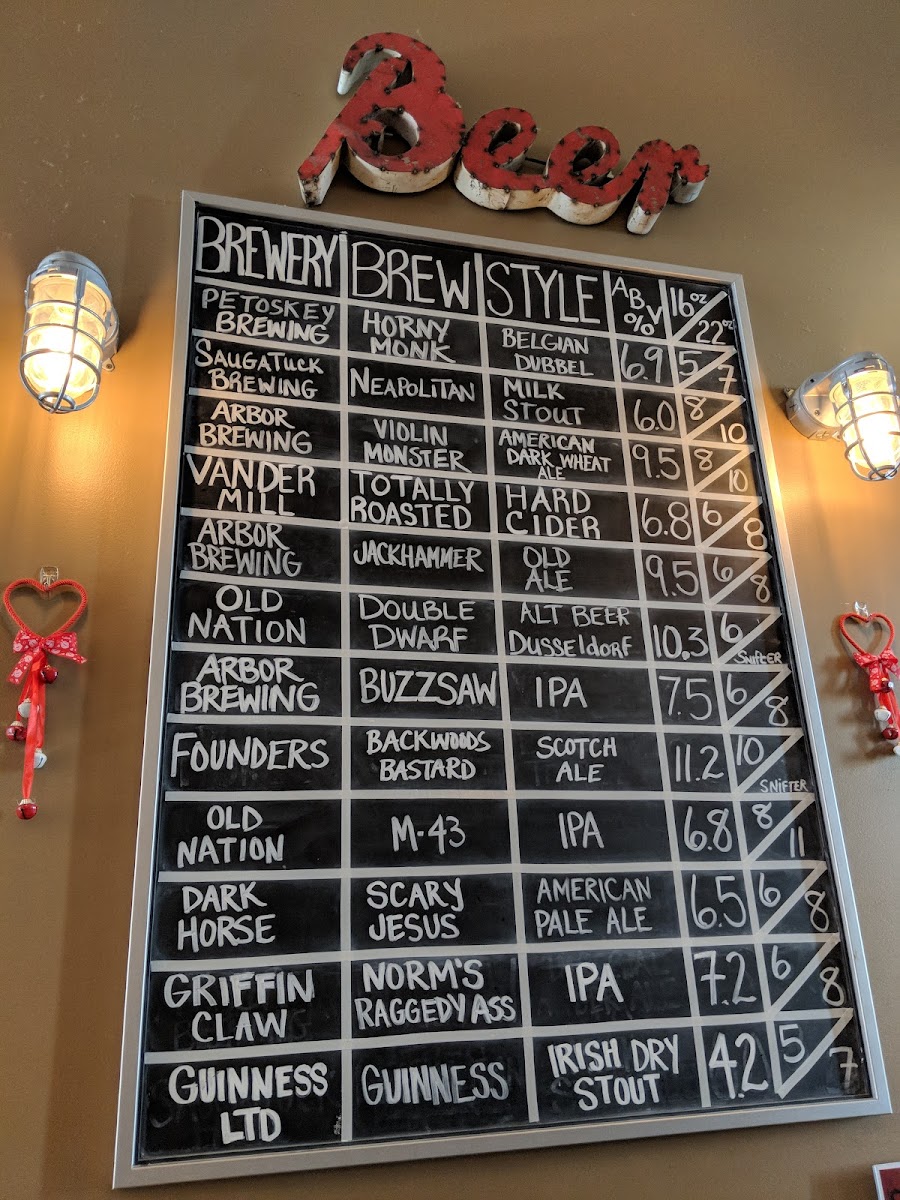 Beer
BREWERY BREW STYLE ABV % 16oz / 22oz
PETOSKEY BREWING HORNY MONK BELGIAN DUBBEL 6.9 5/7
SAUGATUCK BREWING NEAPOLITAN MILK STOUT 6.0 8/10
ARBOR BREWING VIOLIN MONSTER AMERICAN DARK WHEAT ALE 9.5 8/10
VANDER MILL TOTALLY ROASTED HARD CIDER 6.8 6/8
ARBOR BREWING JACKHAMMER OLD ALE 9.5 6/8
OLD NATION DOUBLE DWARF ALT BEER Dusseldorf 10.3 6/Snifter
ARBOR BREWING BUZZSAW IPA 7.5 6/8
FOUNDERS BACKWOODS BASTARD SCOTCH ALE 11.2 10/SNIFTER
OLD NATION M-43 IPA 6.8 8/11
DARK HORSE SCARY JESUS AMERICAN PALE ALE 6.5 6/8
GRIFFIN CLAW NORM'S RAGGEDY ASS IPA 7.2 6/8
GUINNESS LTD GUINNESS IRISH DRY STOUT 4.2 5/7